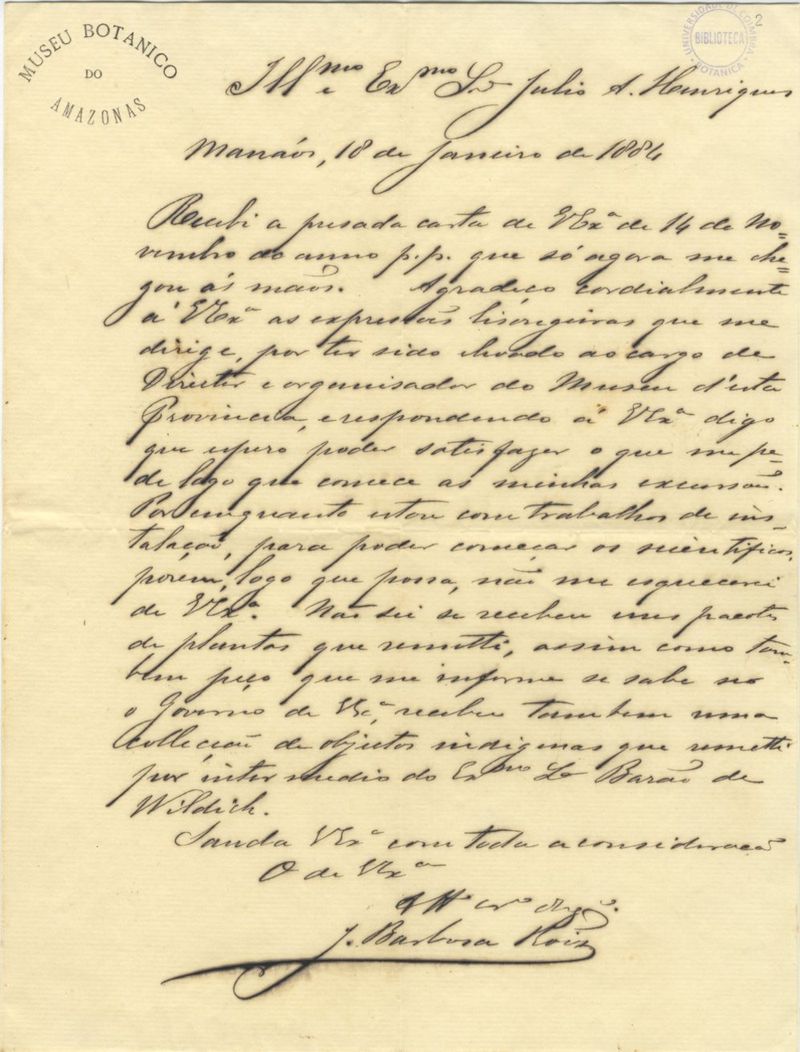 MUSEU BOTANICO
DO
AMAZONAS
UNIVERSIDADE DE COIMBRA
BIBLIOTECA
BOTANICA
2
Ill.mo e Ex.mo Sr. Julio A. Henriques
Manáos, 18 de Janeiro de 1884
Recebi a presada carta de VExª de 14 de No=
vembro do anno p.p. que só agora me che=
gou ás mãos. Agradeço cordialmente
á VExª as expressões lisongeiras que me
dirige, por ter sido elevado ao cargo de
Director e organisador do Museu d'esta
Provincia, e respondendo á VExª digo
que espero poder satisfazer o que me pe=
de logo que comece as minhas excursões.
Por emquanto estou com trabalhos de ins=
talação, para poder começar os scientificos,
porem, logo que possa, não me esquecerei
de VExª. Não sei se recebeu uns pacotes
de plantas que remetti, assim como tam=
bem peço que me informe se sabe se
o Governo de recebeu tambem uma
collecção de objectos indigenas que remetti
por intermedio do Exmo Sr Barão de
Wildich.
Sauda VExª com toda a consideração
O de VExª
Attº crº obrgº.
J. Barbosa Roiz